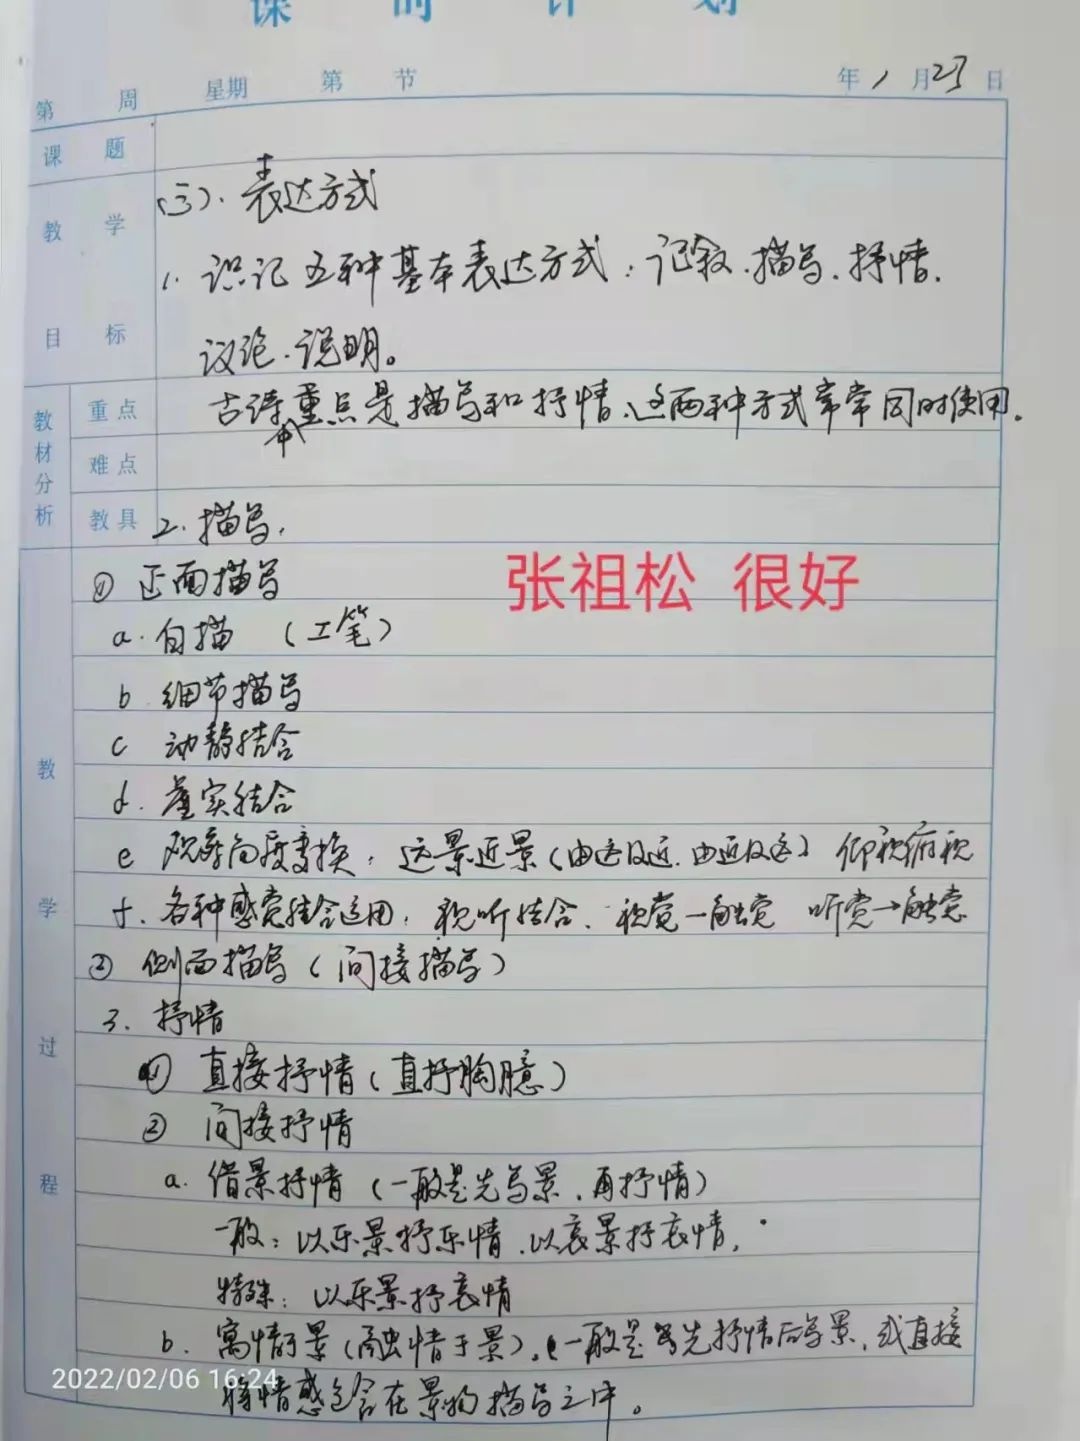 课时计划
第 周 星期 第 节 年 1 月 23 日
课题
教学目标
(三).表达方式
1. 识记五种基本表达方式:记叙、描写、抒情、
议论、说明。
教材分析
重点
古诗中重点是描写和抒情、这两种方式常常同时使用。
难点
教具
2. 描写.
① 正面描写
张祖松 很好
a. 白描 (工笔)
b 细节描写
c 动静结合
d. 虚实结合
教学过程
e 观察角度变换:远景近景(由远及近.由近及远)仰视俯视
f. 各种感觉结合运用:视听结合、视觉—触觉 听觉→触觉
② 侧面描写(间接描写)
3. 抒情
① 直接抒情(直抒胸臆)
② 间接抒情
a. 借景抒情(一般是先写景、再抒情)
一般:以乐景抒乐情、以哀景抒哀情.
特殊:以乐景抒哀情
b. 寓情于景(融情于景)。(一般是先抒情后写景,或直接
2022/02/06 16:24
将情感包含在景物描写之中。